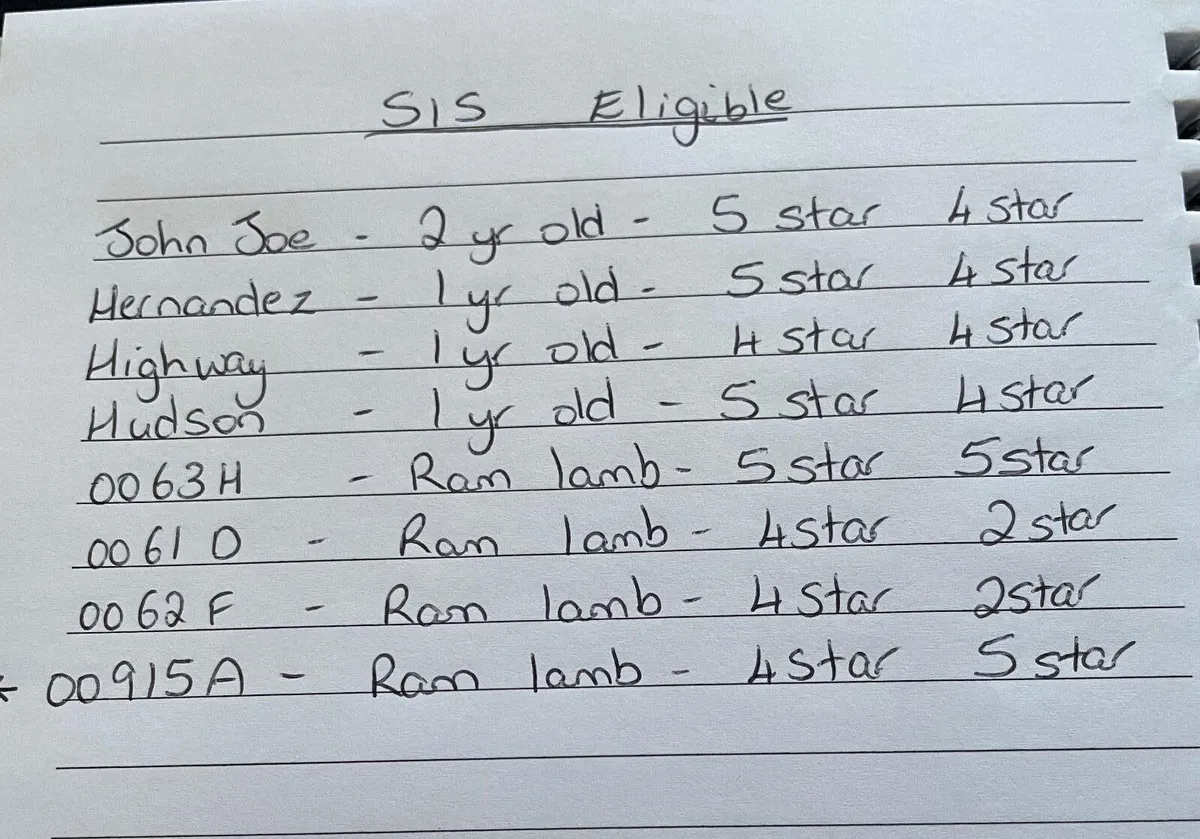 SIS Eligible
John Joe - 2 yr old - 5 star 4 star
Hernandez - 1 yr old - 5 star 4 star
Highway - 1 yr old - 4 star 4 star
Hudson - 1 yr old - 5 star 4 star
0063H - Ram lamb - 5 star 5 star
0061D - Ram lamb - 4 star 2 star
0062F - Ram lamb - 4 star 2 star
* 00915A - Ram lamb - 4 star 5 star